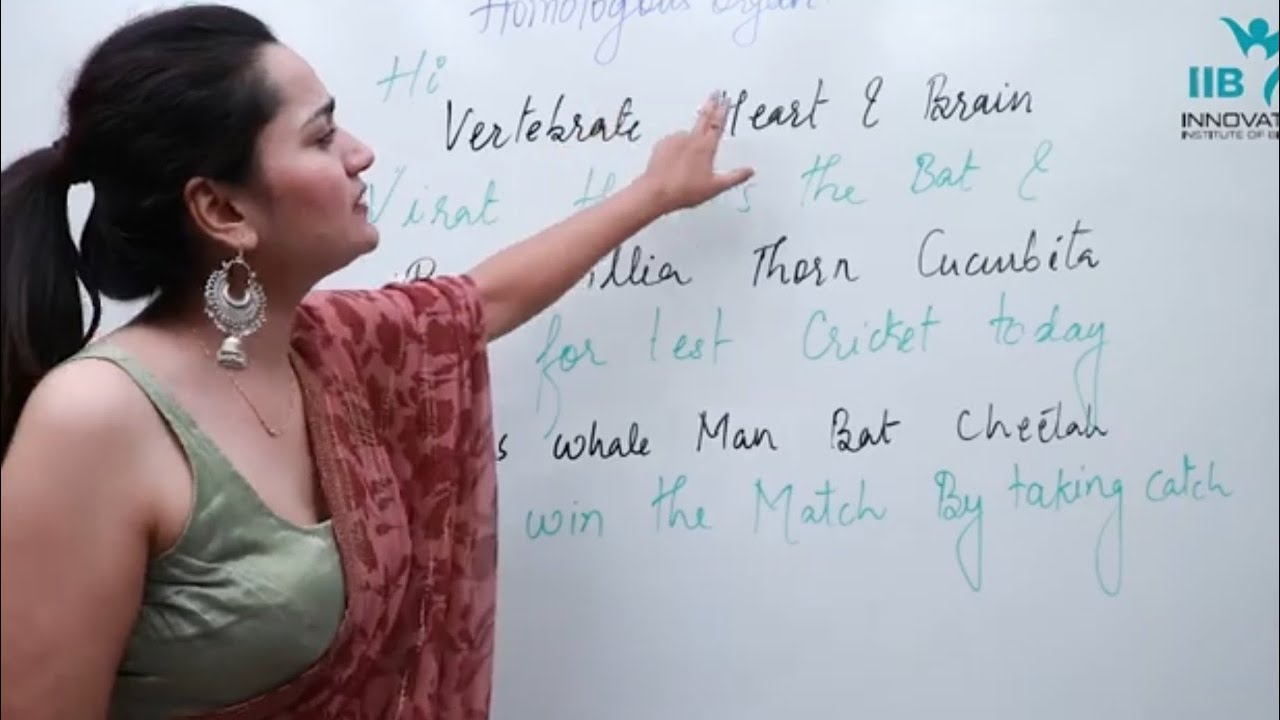 Homologous organ
Hi
Vertebrate Heart & Brain
Virat the Bat &
Thorn Cucurbita
for test Cricket today
whale Man Bat Cheetah
win the Match By taking catch
IIB
INNOVAT
INSTITUTE OF B